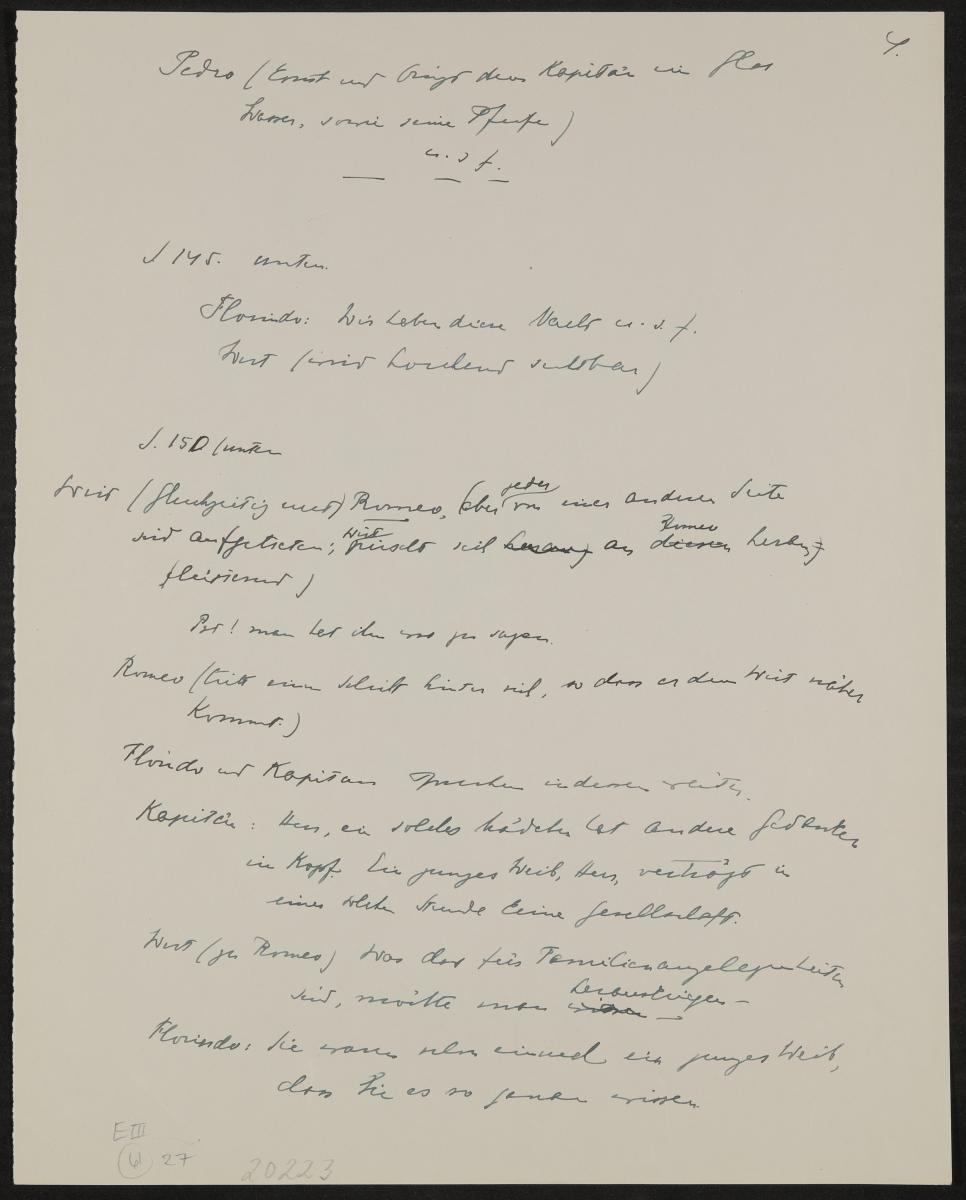 4.
Pedro (kommt und bringt dem Kapitän ein Glas
Wasser, sowie seine Pfeife)
u. s. f.
S 145. unten.
Florindo: Wir haben diese Nacht u. s. f.
Wirt (wird horchend sichtbar)
S. 150 (unten
Wirt (gleichzeitig mit) Romeo, (aber jeder von einer anderen Seite
sind aufgetreten; Wirt pirscht sich an Romeo heran;
flüsternd)
Pst! man hat ihm was zu sagen.
Romeo (tritt einen Schritt hinter sich, so dass er dem Wirt näher
kommt.)
Florindo und Kapitän sprechen indessen weiter.
Kapitän: Herr, ein solches Mädchen hat andere Gedanken
im Kopf. Ein junges Weib, Herr, verträgt in
einer solchen Stunde keine Gesellschaft.
Wirt (zu Romeo) Was das für Familienangelegenheiten
sind, möchte man herausbringen –
Florindo: Sie waren schon einmal ein junges Weib,
dass Sie es so genau wissen.
E III
61 27
20223